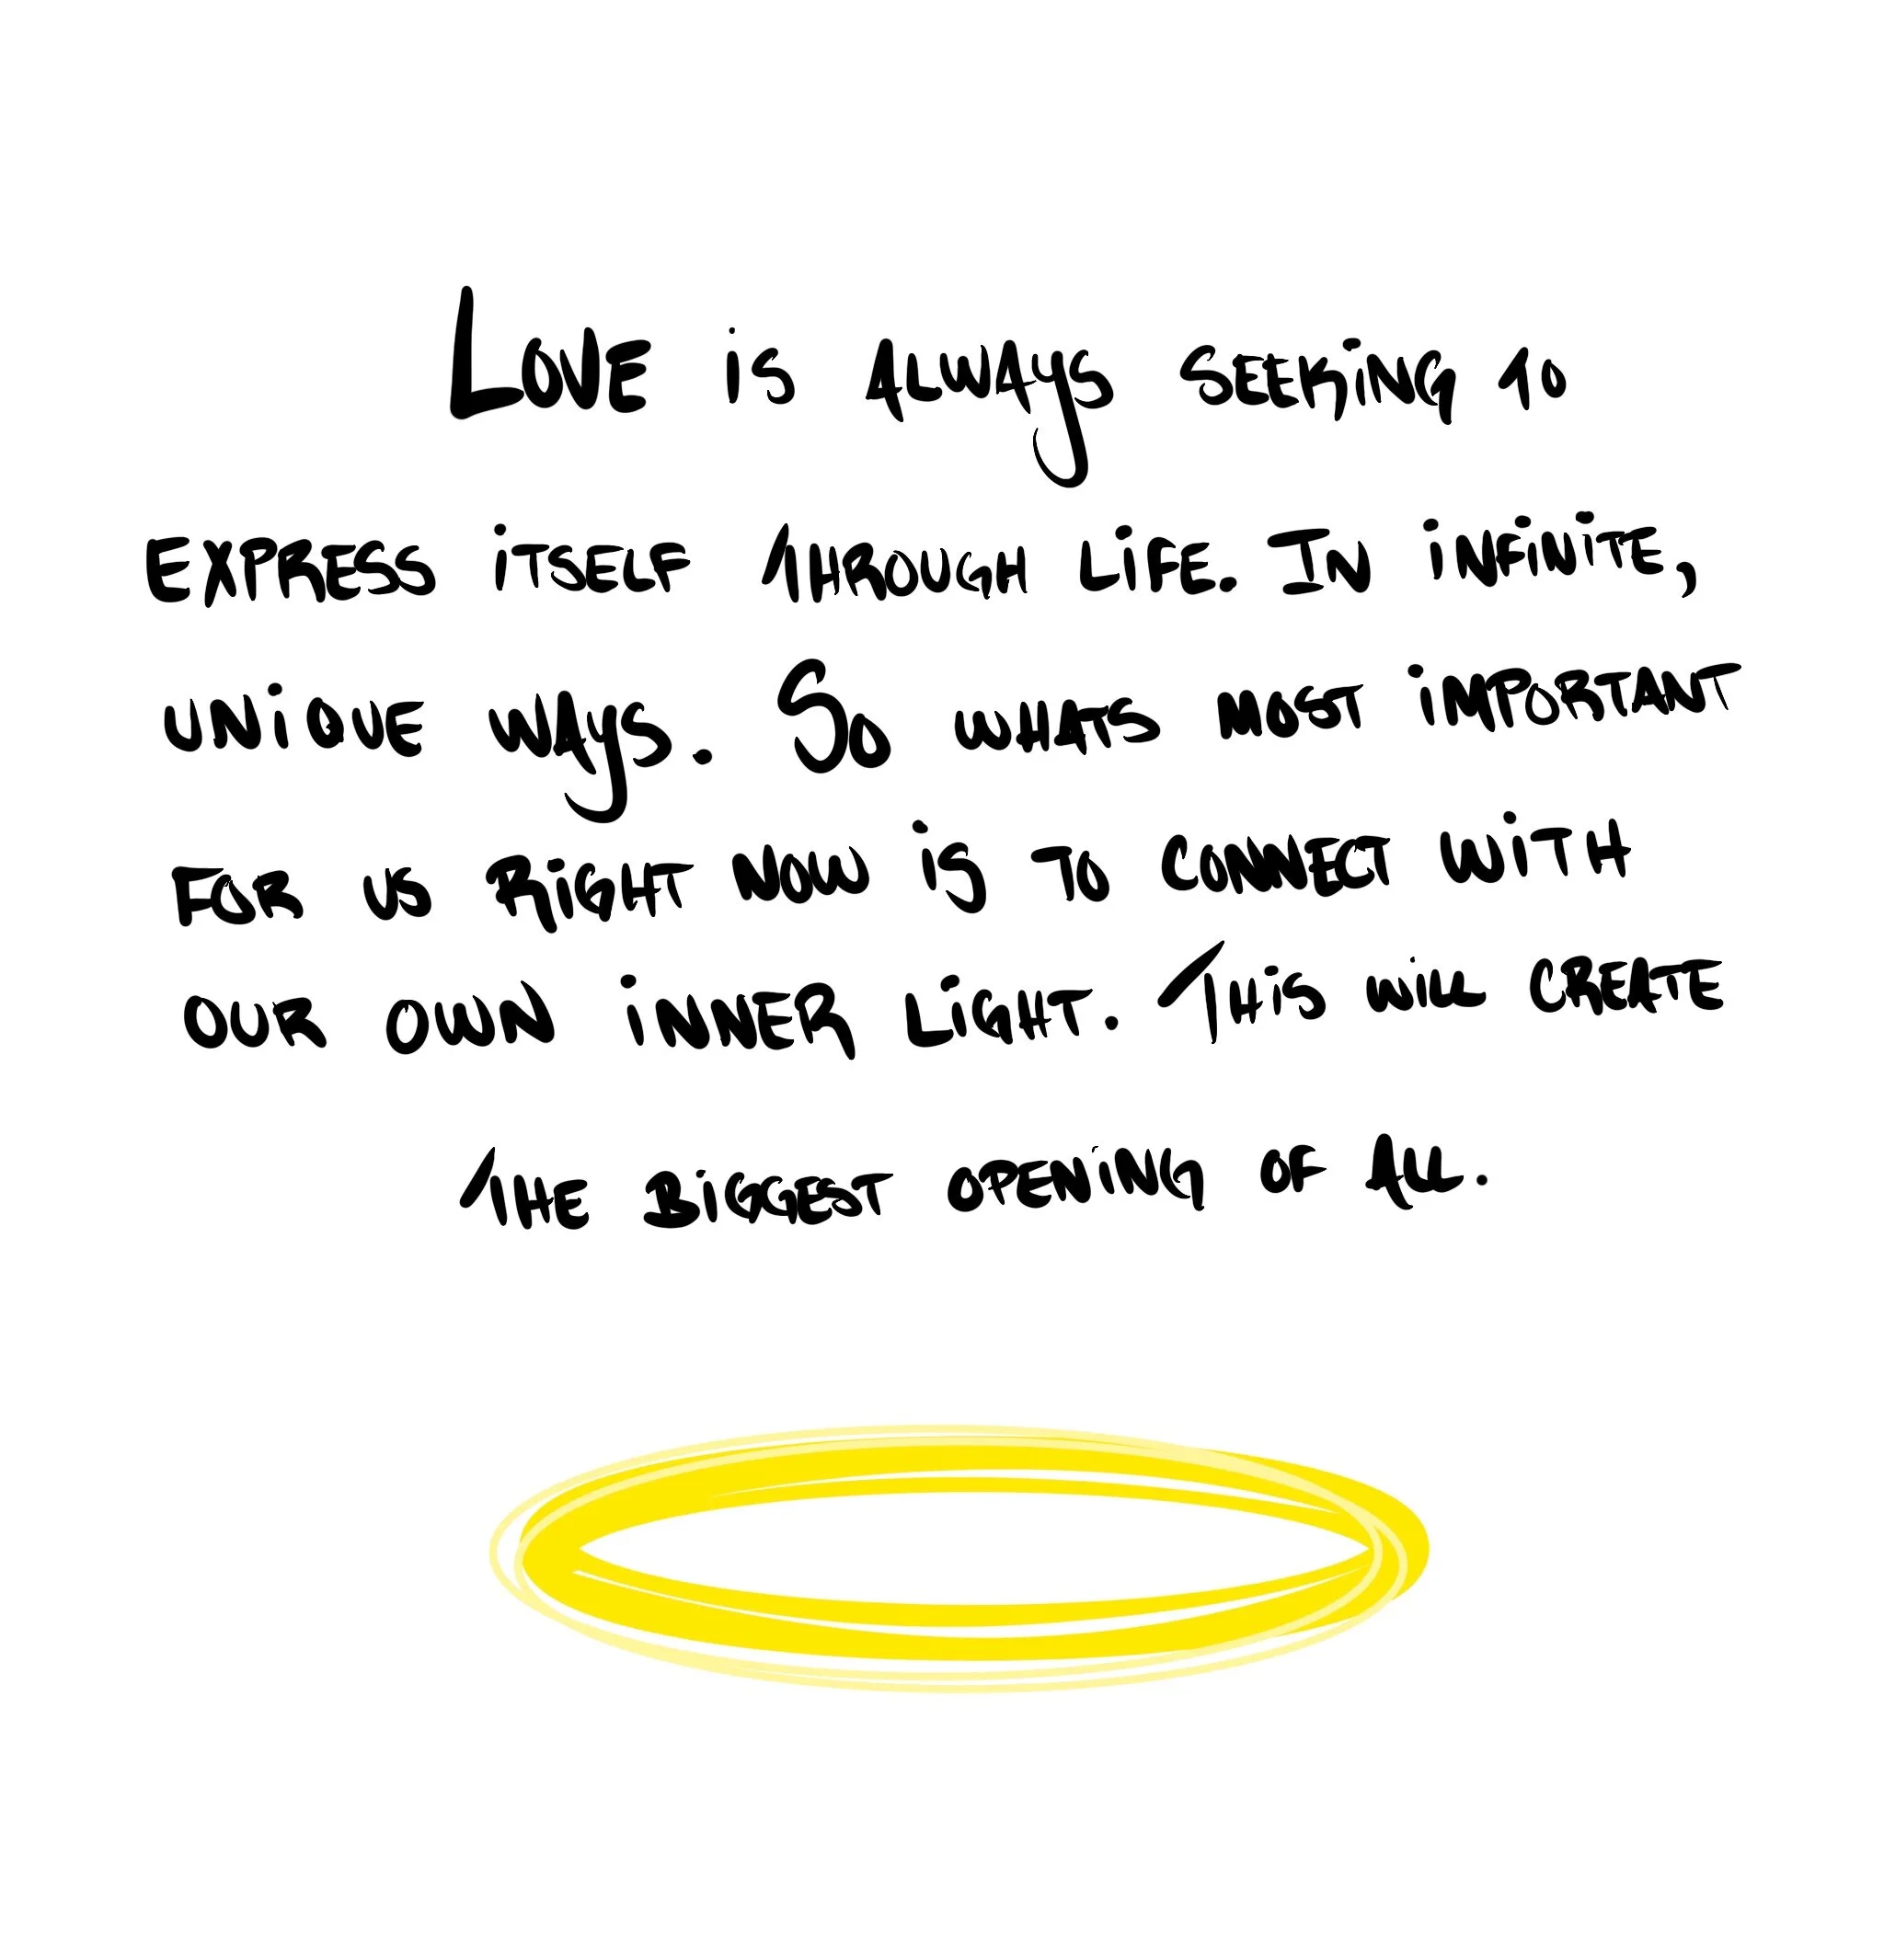 Love is always seeking to
express itself through life. In infinite,
unique ways. So whats most important
for us right now is to connect with
our own inner light. This will create
the biggest opening of all.